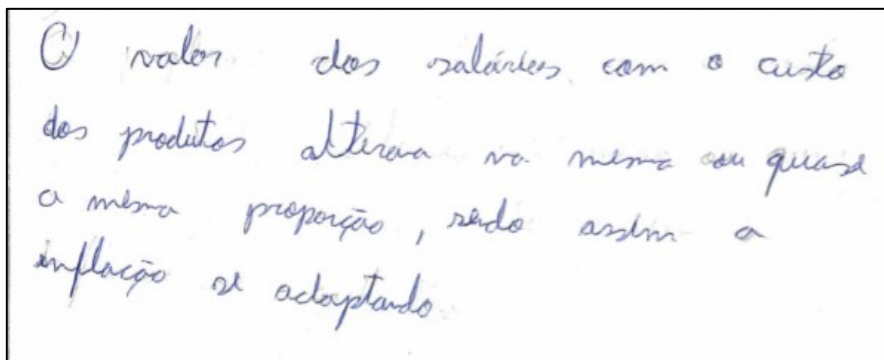 O valor dos salários com o custo
dos produtos alterava na mesma ou quase
a mesma proporção, sendo assim a
inflação se adaptando